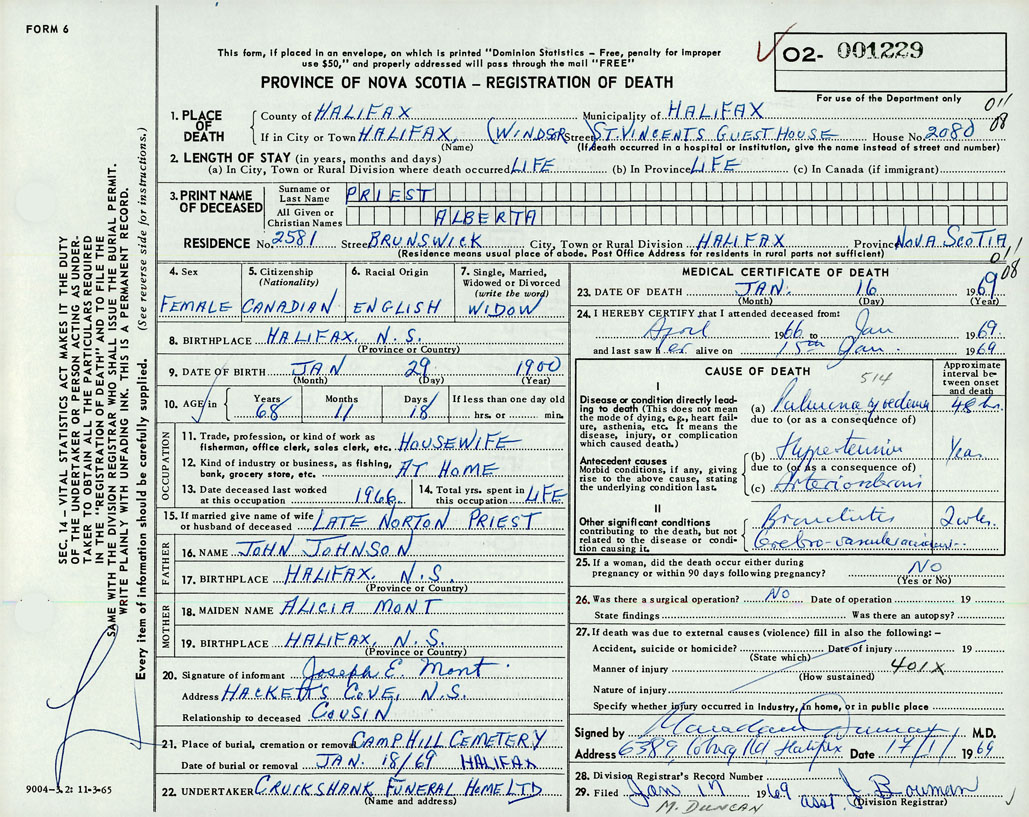 FORM 6
This form, if placed in an envelope, on which is printed "Dominion Statistics – Free, penalty for improper
use $50," and properly addressed will pass through the mail "FREE"
PROVINCE OF NOVA SCOTIA – REGISTRATION OF DEATH
O2- 001229
For use of the Department only
011
08
SEC. 14 – VITAL STATISTICS ACT MAKES IT THE DUTY
OF THE UNDERTAKER OR PERSON ACTING AS UNDER-
TAKER TO OBTAIN ALL THE PARTICULARS REQUIRED
IN THE "REGISTRATION OF DEATH" AND TO FILE THE
SAME WITH THE DIVISION REGISTRAR WHO SHALL ISSUE THE BURIAL PERMIT.
WRITE PLAINLY WITH UNFADING INK. THIS IS A PERMANENT RECORD.
Every item of information should be carefully supplied. (See reverse side for instructions.)
1. PLACE OF DEATH
County of HALIFAX Municipality of HALIFAX
If in City or Town HALIFAX, (WINDSOR Street) ST. VINCENTS GUEST HOUSE House No. 2080
(Name) (If death occurred in a hospital or institution, give the name instead of street and number)
2. LENGTH OF STAY (in years, months and days)
(a) In City, Town or Rural Division where death occurred LIFE (b) In Province LIFE (c) In Canada (if immigrant)
3. PRINT NAME OF DECEASED
Surname or Last Name PRIEST
All Given or Christian Names ALBERTA
RESIDENCE No. 2581 Street BRUNSWICK City, Town or Rural Division HALIFAX Province NOVA SCOTIA
(Residence means usual place of abode. Post Office Address for residents in rural parts not sufficient)
011
08
4. Sex FEMALE
5. Citizenship (Nationality) CANADIAN
6. Racial Origin ENGLISH
7. Single, Married, Widowed or Divorced (write the word) WIDOW
8. BIRTHPLACE HALIFAX, N.S.
(Province or Country)
9. DATE OF BIRTH JAN 29 1900
(Month) (Day) (Year)
10. AGE in Years 68 Months 11 Days 18 If less than one day old hrs. or min.
OCCUPATION
11. Trade, profession, or kind of work as fisherman, office clerk, sales clerk, etc. HOUSEWIFE
12. Kind of industry or business, as fishing, bank, grocery store, etc. AT HOME
13. Date deceased last worked at this occupation 1966
14. Total yrs. spent in this occupation LIFE
15. If married give name of wife or husband of deceased LATE NORTON PRIEST
FATHER
16. NAME JOHN JOHNSON
17. BIRTHPLACE HALIFAX, N.S.
(Province or Country)
MOTHER
18. MAIDEN NAME ALICIA MONT
19. BIRTHPLACE HALIFAX, N.S.
(Province or Country)
20. Signature of informant Joseph E. Mont
Address HACKETT'S COVE, N.S.
Relationship to deceased COUSIN
21. Place of burial, cremation or removal CAMP HILL CEMETERY
Date of burial or removal JAN. 18/69 HALIFAX
22. UNDERTAKER CRUIKSHANK FUNERAL HOME LTD
(Name and address)
9004-S.2: 11-3-65
MEDICAL CERTIFICATE OF DEATH
23. DATE OF DEATH JAN. 16 1969
(Month) (Day) (Year)
24. I HEREBY CERTIFY that I attended deceased from:
April 1966 to Jan 1969
and last saw her alive on 15th Jan. 1969
CAUSE OF DEATH 514
Approximate interval between onset and death
I
Disease or condition directly leading to death (This does not mean the mode of dying, e.g., heart failure, asthenia, etc. It means the disease, injury, or complication which caused death.)
(a) Pulmonary oedema 48 hr.
due to (or as a consequence of)
Antecedent causes
Morbid conditions, if any, giving rise to the above cause, stating the underlying condition last.
(b) Hypertension Years
due to (or as a consequence of)
(c) Arteriosclerosis
II
Other significant conditions contributing to the death, but not related to the disease or condition causing it.
Bronchitis 2 wks.
Cerebro-vascular accident
25. If a woman, did the death occur either during pregnancy or within 90 days following pregnancy? NO
(Yes or No)
26. Was there a surgical operation? NO Date of operation 19
State findings Was there an autopsy?
27. If death was due to external causes (violence) fill in also the following: –
Accident, suicide or homicide? Date of injury 19
(State which)
Manner of injury 401X
(How sustained)
Nature of injury
Specify whether injury occurred in Industry, in home, or in public place
Signed by M.D.
Address 6389 Coburg Rd, Halifax Date 17/1/ 1969
28. Division Registrar's Record Number
29. Filed Jan 17 1969 asst. J Bowman
(Division Registrar)
M. DUNCAN